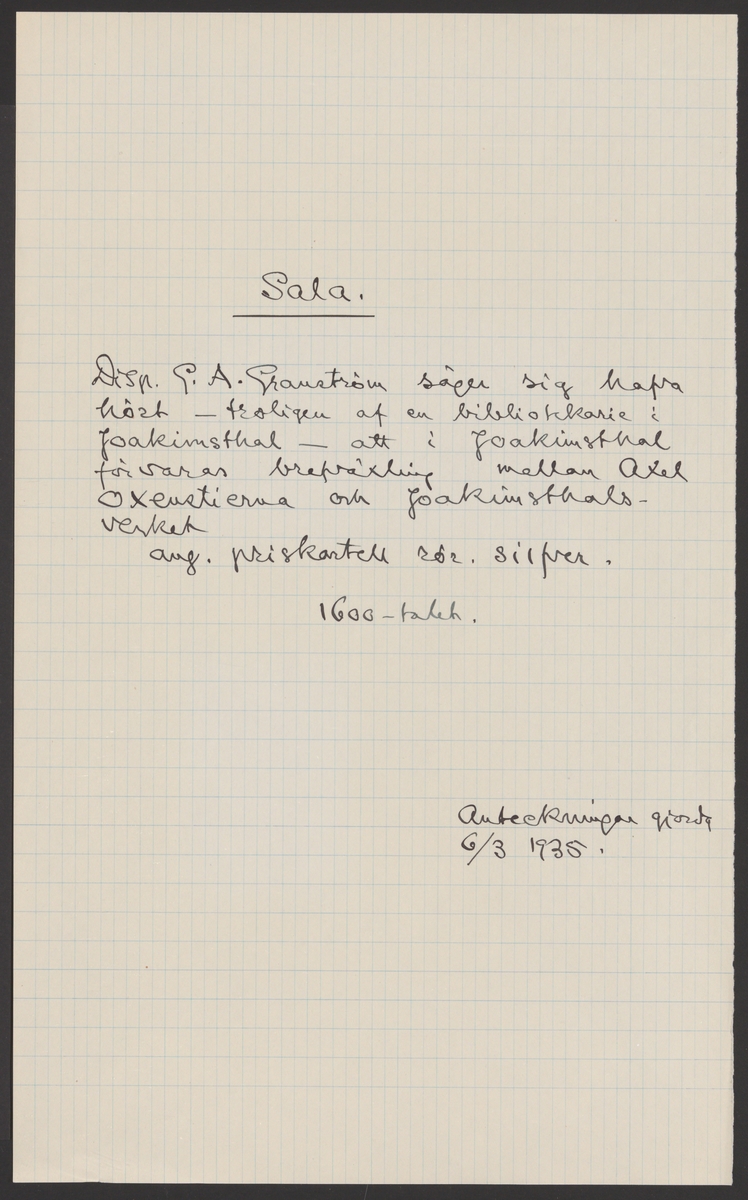 Sala.
Disp. G. A. Granström säger sig hafva
hört – troligen af en bibliotekarie i
Joakimsthal – att i Joakimsthal
förvaras brefväxling mellan Axel
Oxenstierna och Joakimsthals-
verket
ang. priskartell rör. silfver.
1600-talet.
Anteckningen gjorda
6/3 1935.